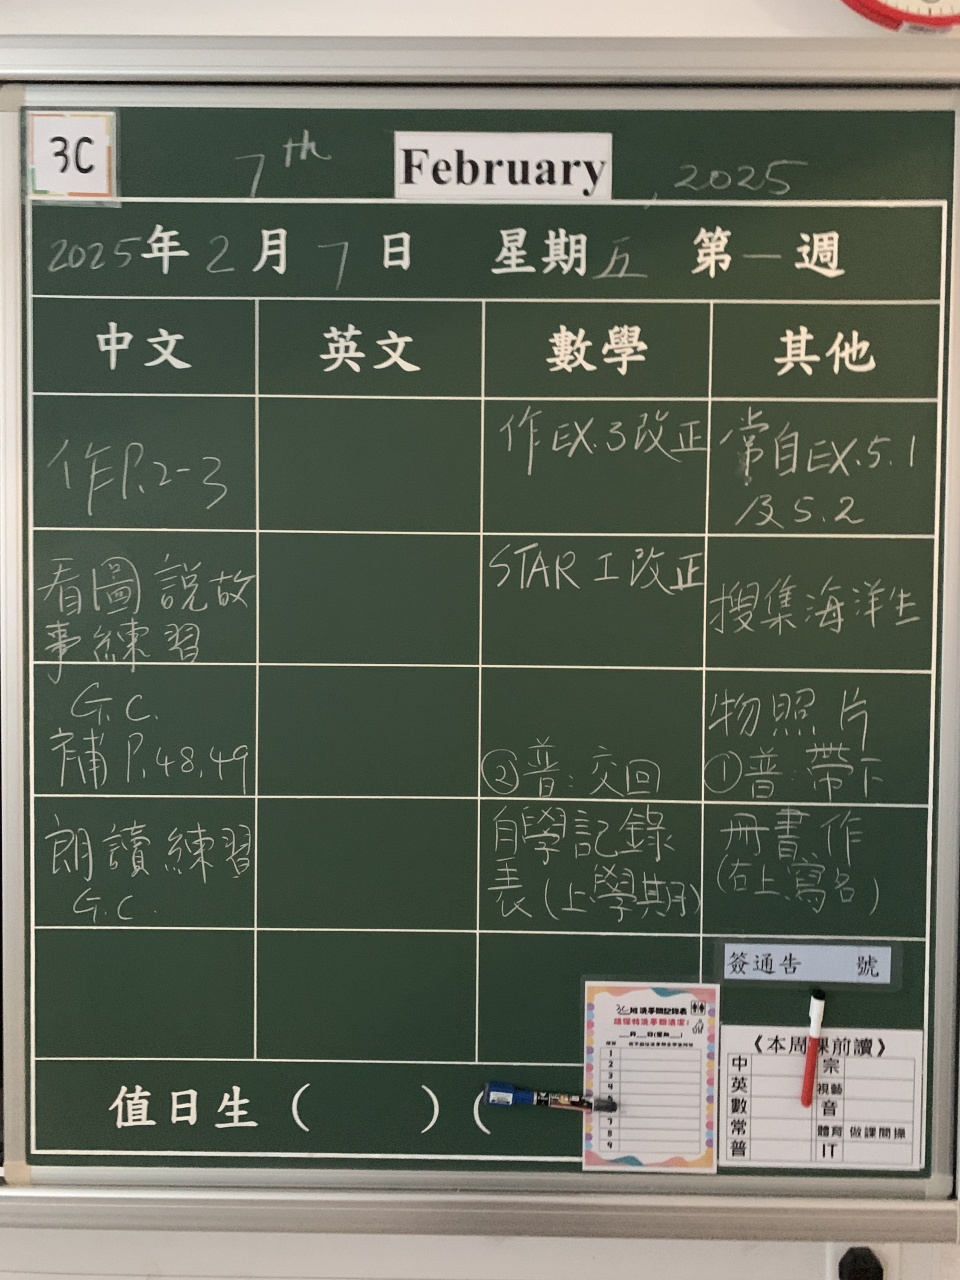 3C
7th February, 2025
2025年2月7日 星期五 第一週
中文 英文 數學 其他
作P.2-3
看圖說故
事練習
G.C.
補P.48,49
朗讀練習
G.C.
作EX.3改正
STAR I 改正
②普:交回
自學記錄
表(上學期)
常自EX.5.1
及5.2
搜集海洋生
物照片
①普:帶下
冊書作
(右上寫名)
簽通告 號
值日生( )(
3C班
1
2
3
4
7
8
9
《本周課前讀》
中 宗
英 視藝
數 音
常 體育 做課間操
普 IT